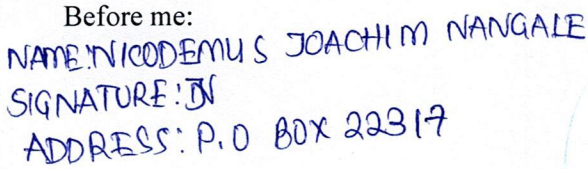 Before me:
NAME:NICODEMUS JOACHIM NANGALE
SIGNATURE:JN
ADDRESS: P.O BOX 22317